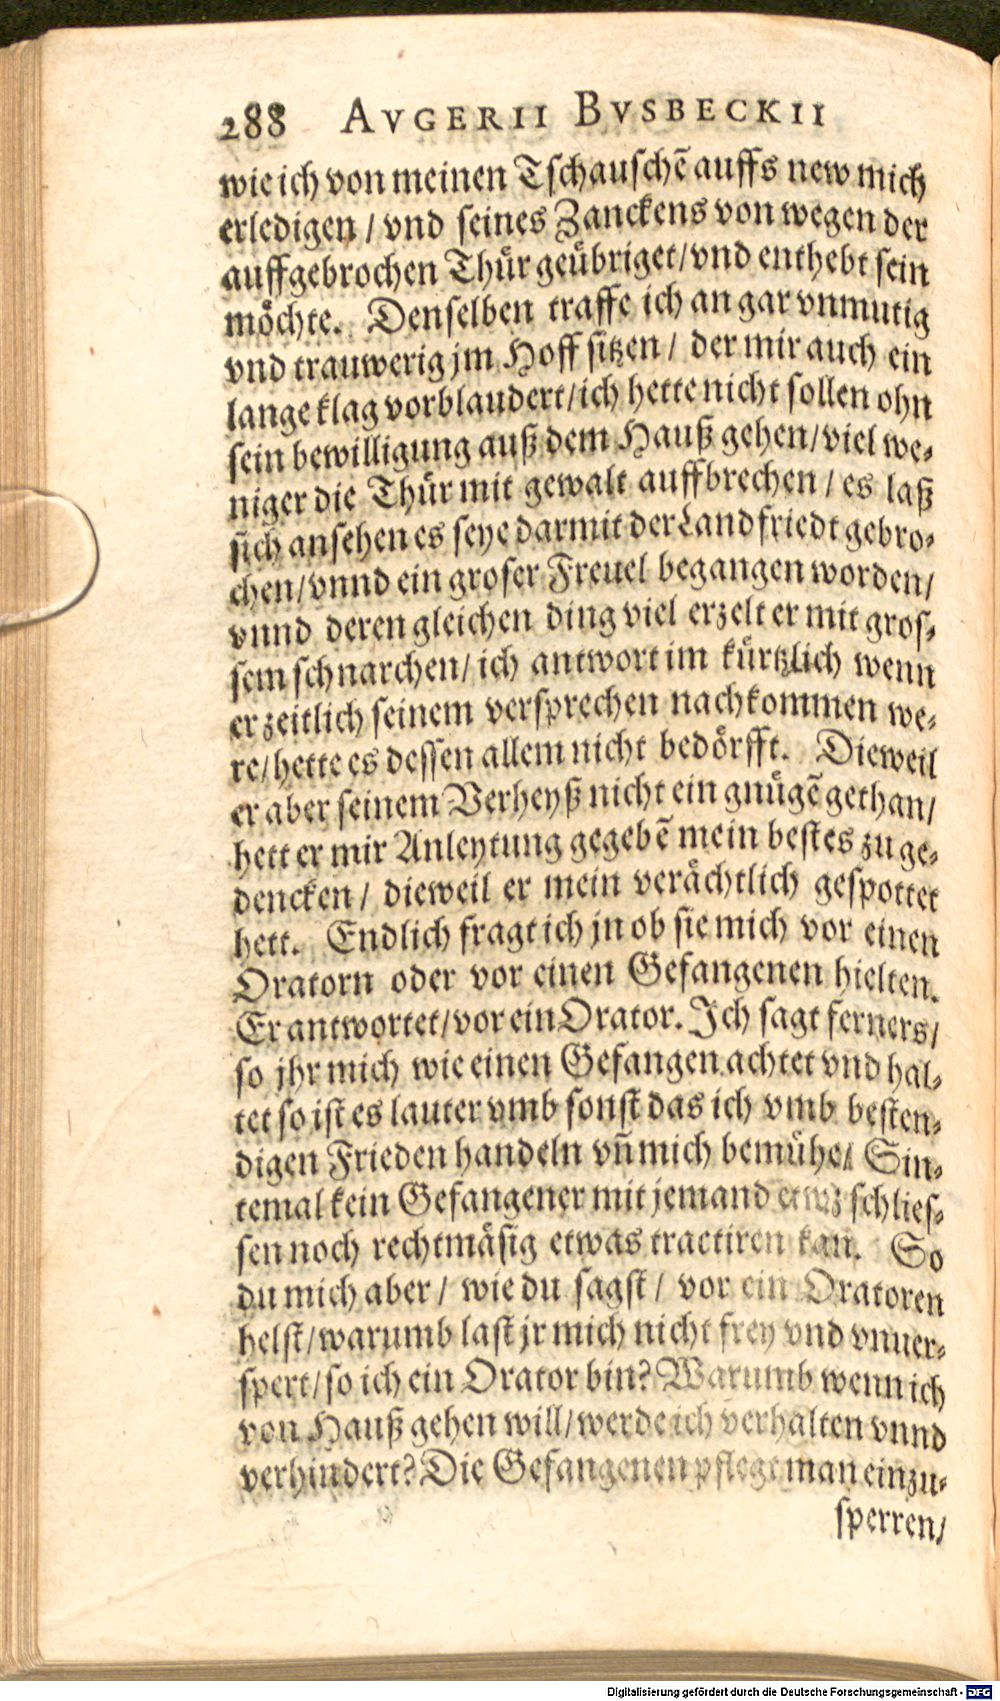 288 AVGERII BVSBECKII
wie ich von meinen Tschauschē auffs new mich
erledigen / vnd seines Zanckens von wegen der
auffgebrochen Thür geübriget/vnd enthebt sein
möchte. Denselben traffe ich an gar vnmutig
vnd trauwerig jm Hoff sitzen / der mir auch ein
lange klag vorblaudert/ich hette nicht sollen ohn
sein bewilligung auß dem Hauß gehen/viel we-
niger die Thür mit gewalt auffbrechen / es laß
sich ansehen es seye darmit der Landfriedt gebro-
chen/vnnd ein groser Freuel begangen worden/
vnnd deren gleichen ding viel erzelt er mit gros-
sem schnarchen/ich antwort im kürtzlich wenn
er zeitlich seinem versprechen nachkommen we-
re/hette es dessen allem nicht bedörfft. Dieweil
er aber seinem Verheyß nicht ein gnügē gethan/
hett er mir Anleytung gegebē mein bestes zu ge-
dencken / dieweil er mein verächtlich gespottet
hett. Endlich fragt ich jn ob sie mich vor einen
Oratorn oder vor einen Gefangenen hielten.
Er antwortet/vor ein Orator. Ich sagt ferners/
so jhr mich wie einen Gefangen achtet vnd hal-
tet so ist es lauter vmb sonst das ich vmb besten-
digen Frieden handeln vñ mich bemühe/ Sin-
temal kein Gefangener mit jemand etwz schlies-
sen noch rechtmäsig etwas tractiren kan. So
du mich aber / wie du sagst / vor ein Oratoren
helst/warumb last jr mich nicht frey vnd vnuer-
spert/so ich ein Orator bin? Warumb wenn ich
von Hauß gehen will/werde ich verhalten vnnd
verhindert? Die Gefangenen pflegt man einzu-
sperren/
Digitalisierung gefördert durch die Deutsche Forschungsgemeinschaft - DFG